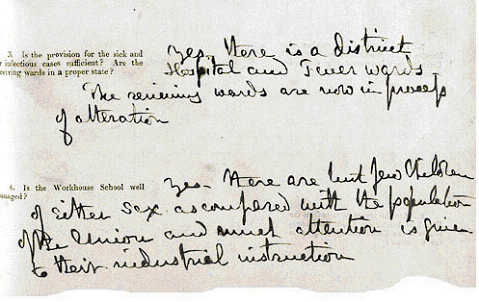 3. Is the provision for the sick and
infectious cases sufficient? Are the
wards in a proper state?
Yes. there is a district
Hospital and Fever wards
The receiving wards are now in process
of alteration
4. Is the Workhouse School well
managed?
Yes. there are but few Children
of either sex as compared with the population
of the Union and much attention is given
to their industrial instruction